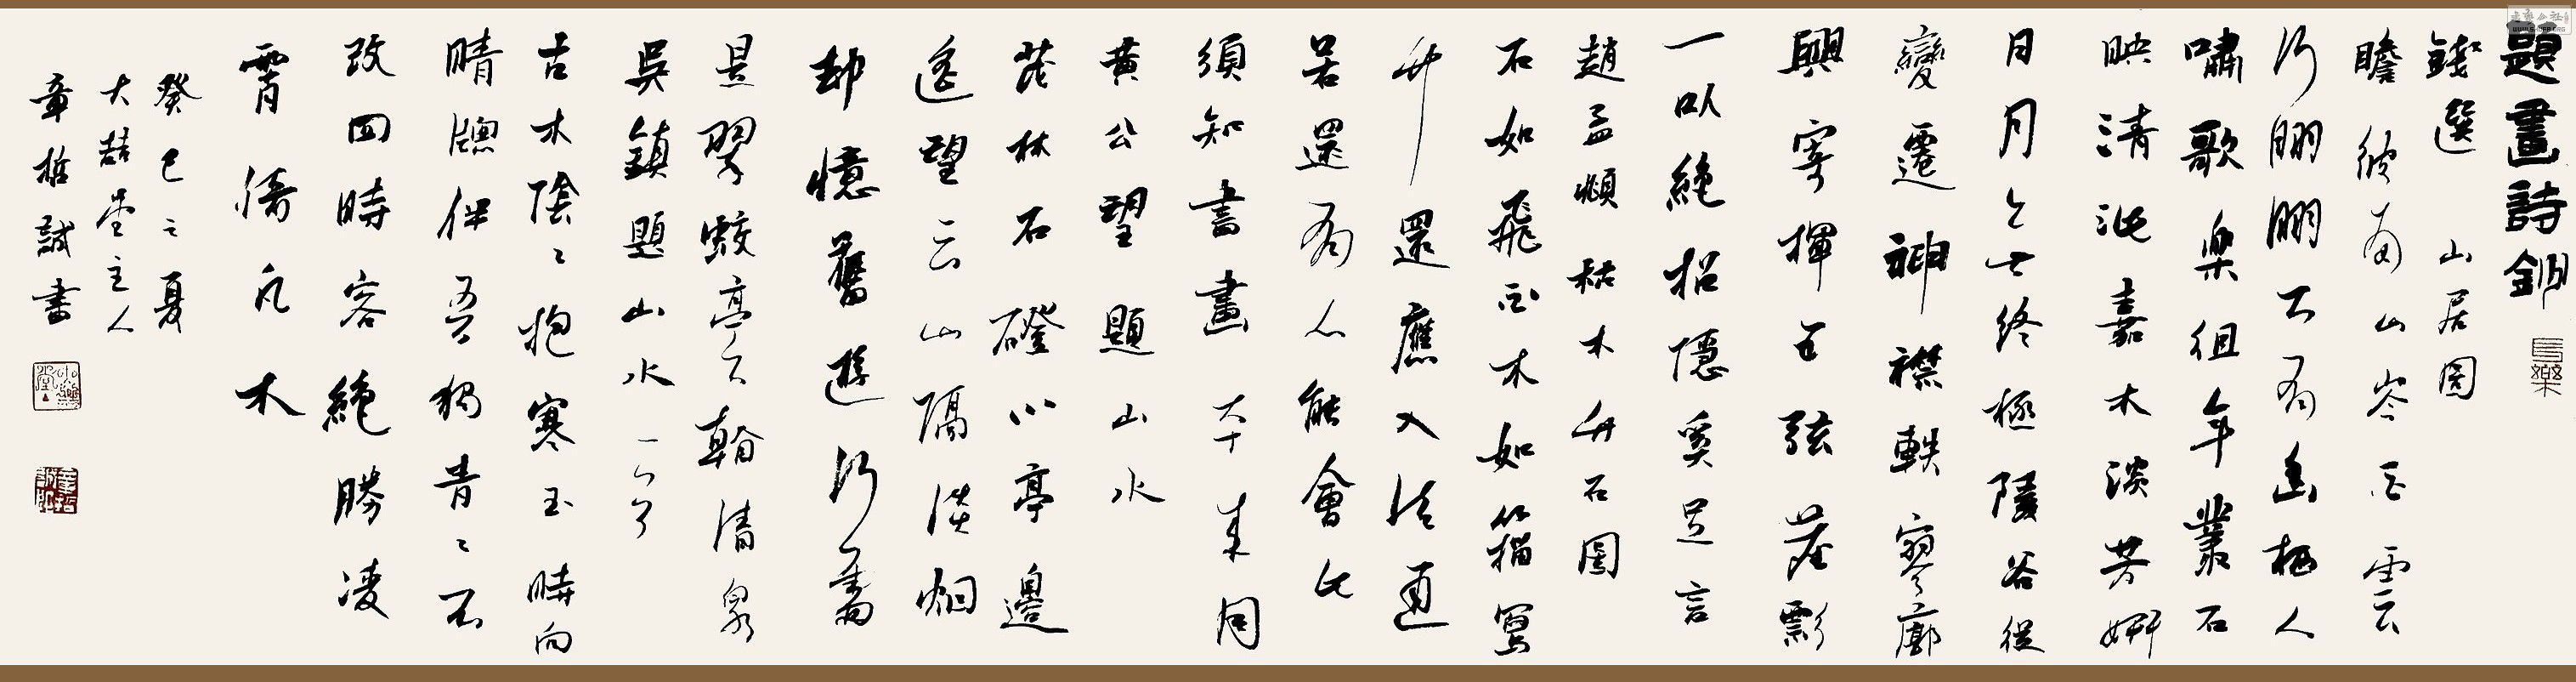 題畫詩鈔
長樂
錢選 山居圖
瞻彼南山岑白雲
何翩翩下有幽栖人
嘯歌樂徂年叢石
映清泚嘉木淡芳妍
日月終極陵谷從
變遷神襟軼寥廓
興寄揮五弦塵影
一以絕招隱奚足言
趙孟頫枯木竹石圖
石如飛白木如籀寫
竹還應八法通
若還有人能會此
須知書畫本来同
黃公望題山水
茂林石磴小亭邊
遙望云山隔淡烟
却憶舊遊何處
是翠蛟亭下看清泉
吳鎮題山水一
古木陰〻抱寒玉時向
晴牕伴吾獨青〻不
改四時容絕勝凌
霄倚凡木
癸巳之夏
大喆堂主人
章哲誠書